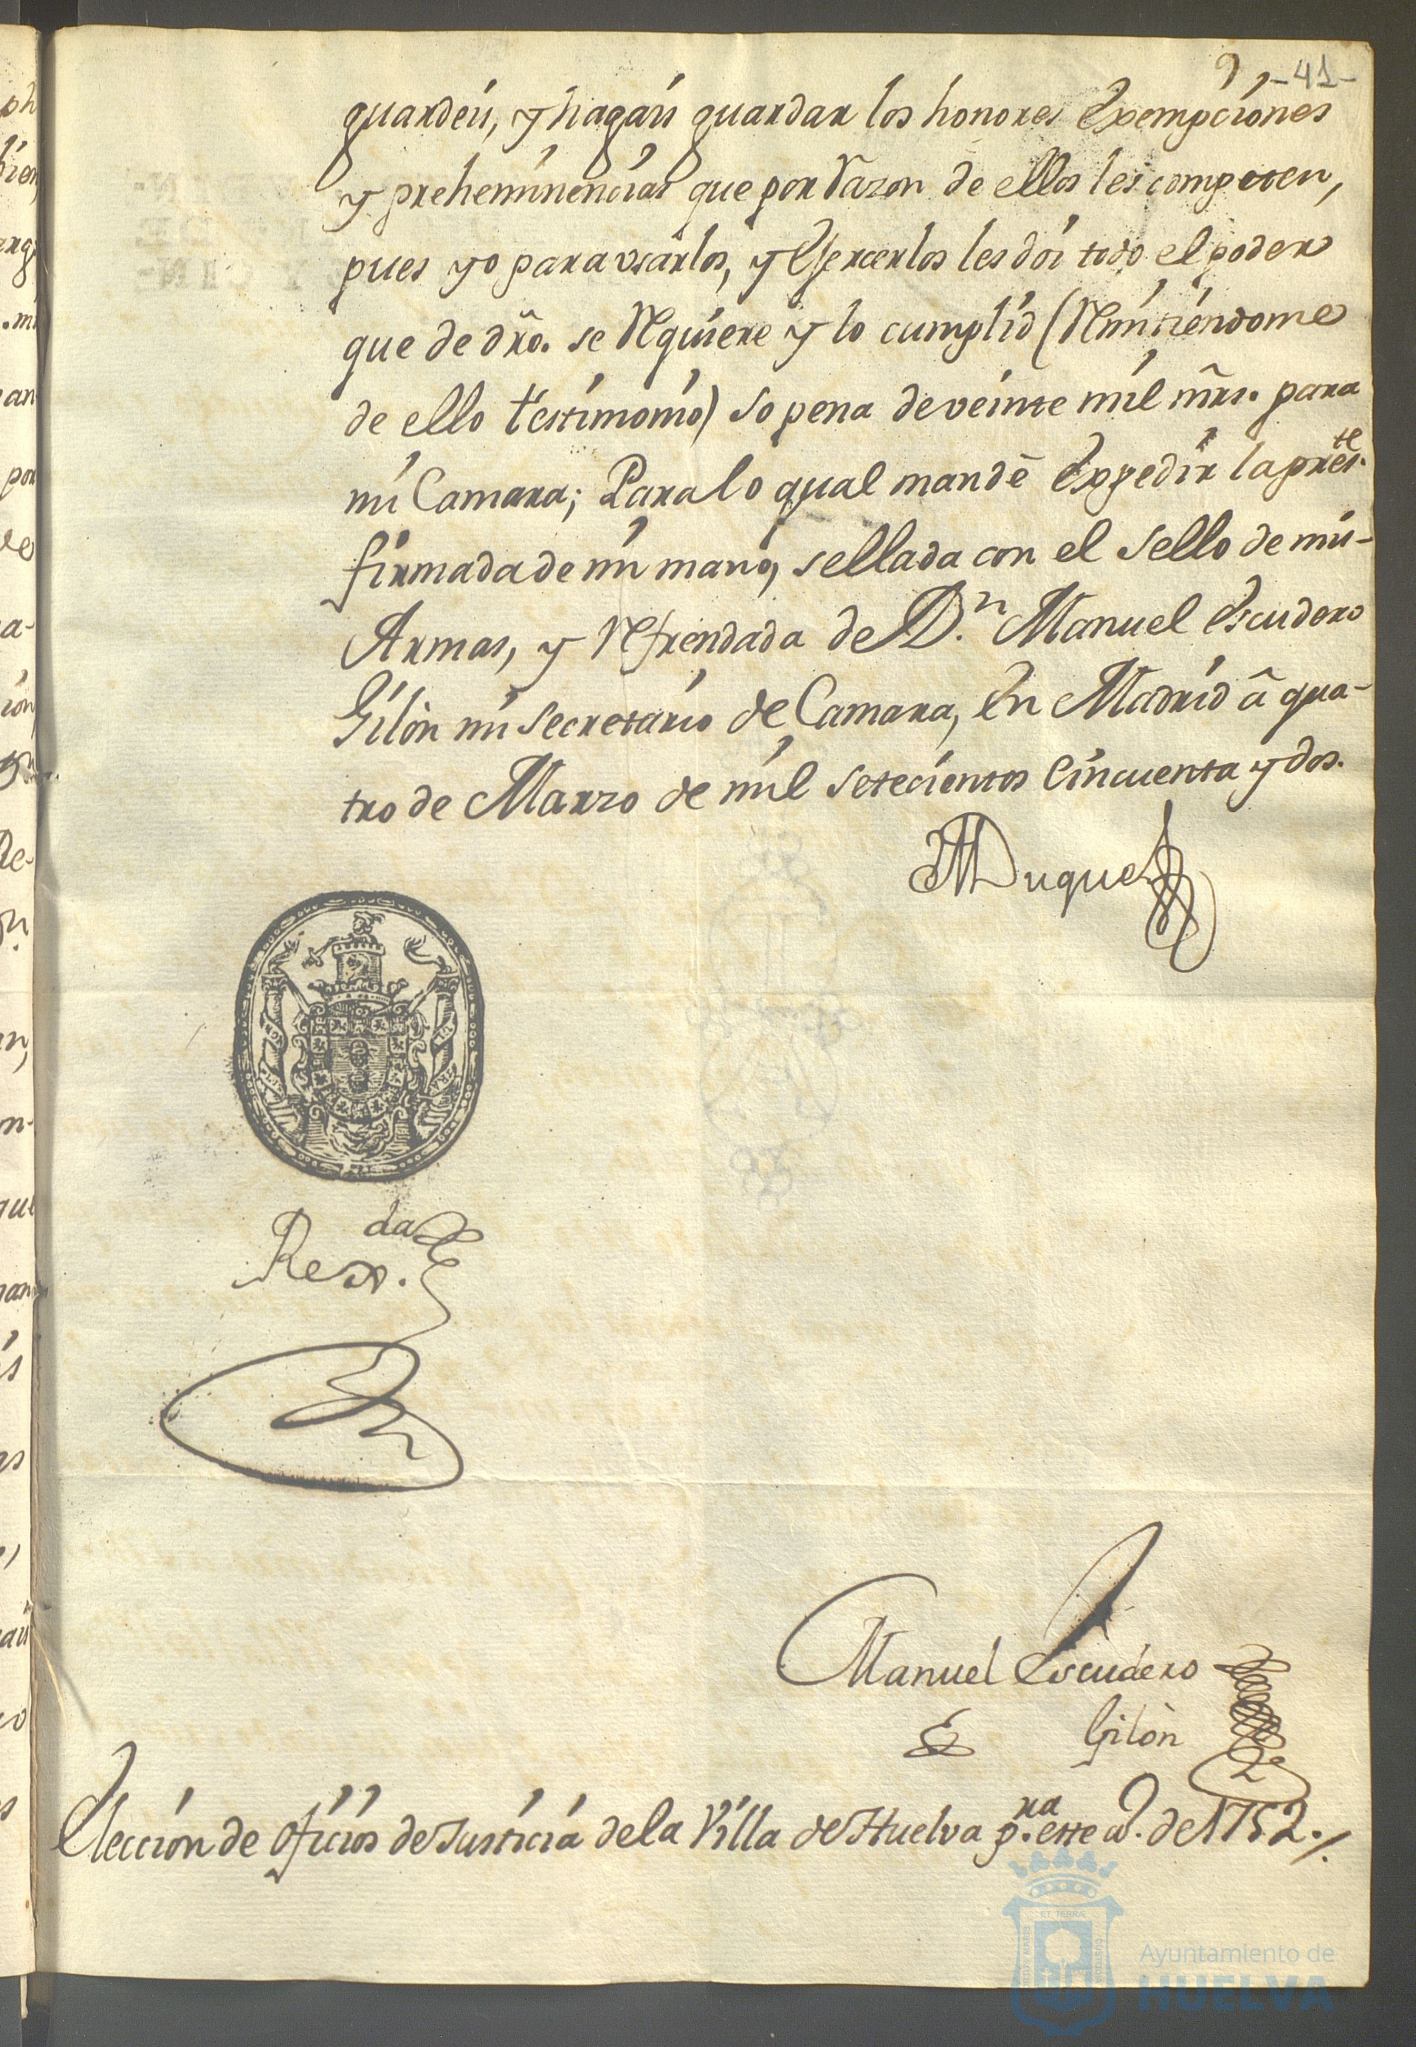 9 -41-
guardeis, y hagais guardar los honores Exempciones
y preheminencias que por razon de ellos les competen,
pues yo para usarlos, y Exercerlos les dói todo el poder
que de dro. se Requiere y lo cumplid (Remitiendome
de ello testimonio) so pena de veinte mil mrs. para
mi Camara; Para lo qual mandè Expedir la pres.te
firmada de mi mano, sellada con el sello de mis
Armas, y Refrendada de D.n Manuel Escudero
Gilòn mi secretario de Camara, En Madrid â qua-
tro de Marzo de mil setecientos Cincuenta y dos.
El Duque
Rex.da
Manuel Escudero
Gilòn
Eleccion de oficios de Justicia de la Villa de Huelva p.ra este a. de 1752./.
Ayuntamiento de
HUELVA